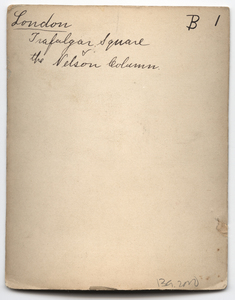 London B 1
Trafalgar Square
&
the Nelson Column